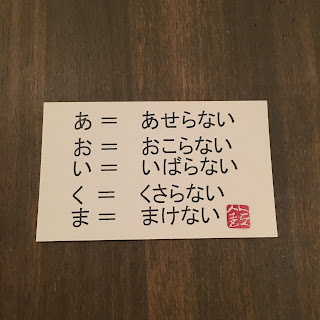 あ＝ あせらない
お＝ おこらない
い＝ いばらない
く＝ くさらない
ま＝ まけない